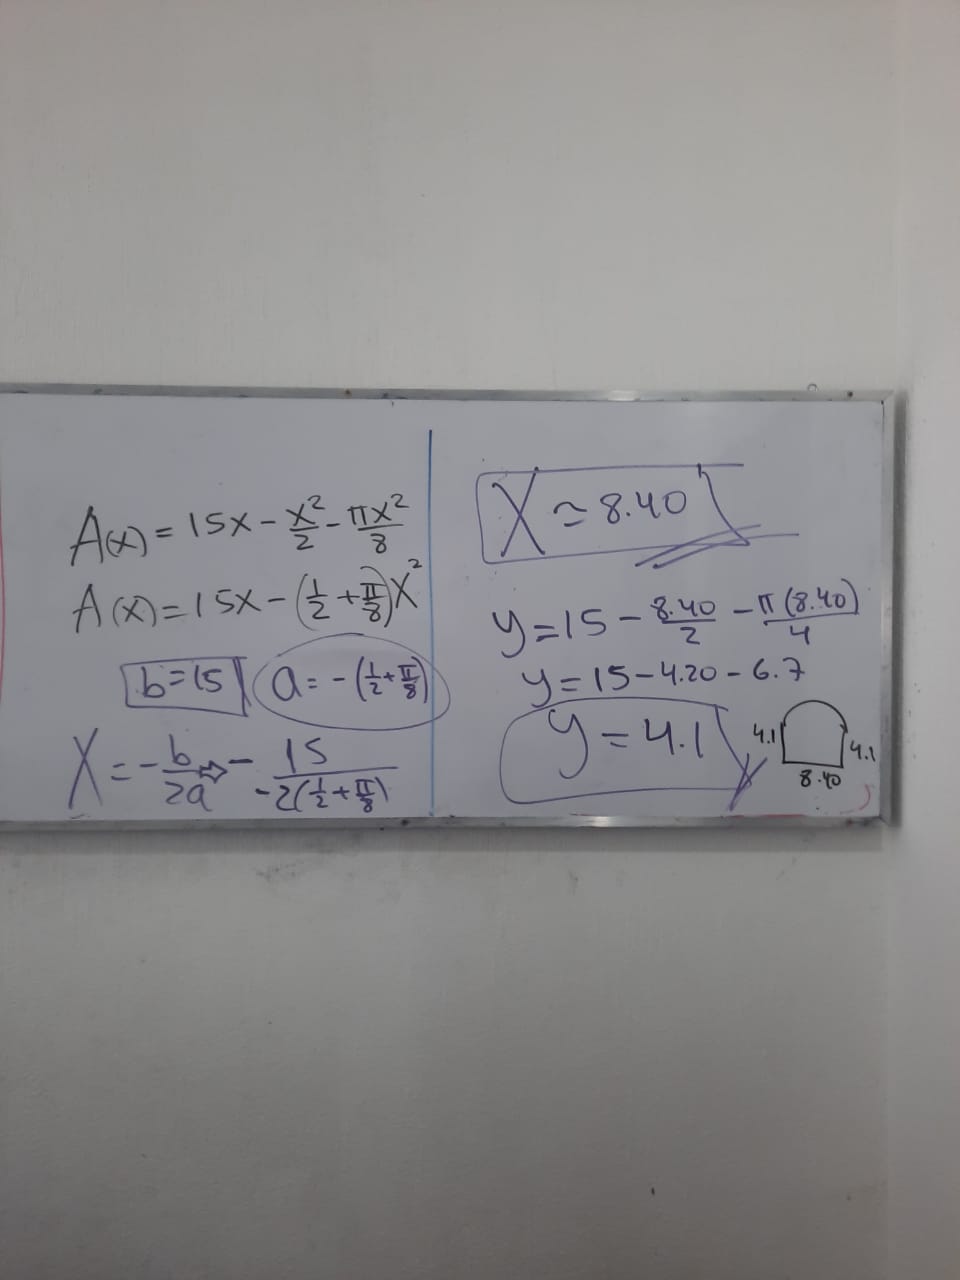 A(x) = 15x - x²/2 - πx²/8
A(x) = 15x - (1/2 + π/8)x²
b = 15
a = -(1/2 + π/8)
X = -b/2a ⇨ - 15/-2(1/2 + π/8)
X ≃ 8.40
y = 15 - 8.40/2 - π(8.40)/4
y = 15 - 4.20 - 6.7
y = 4.1
4.1
4.1
8.40